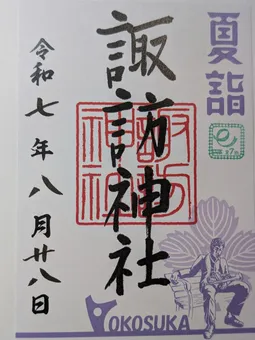 夏詣
諏訪神社
諏訪
神社
令和七年八月廿八日
YOKOSUKA